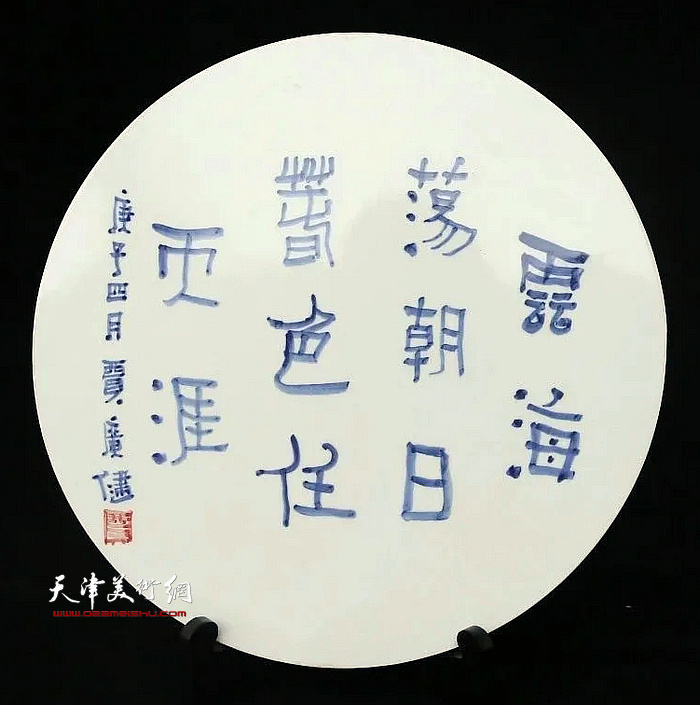 雲海
蕩朝日
春色任
天涯
庚子四月 賈廣健
天津美術網
www.022meishu.com